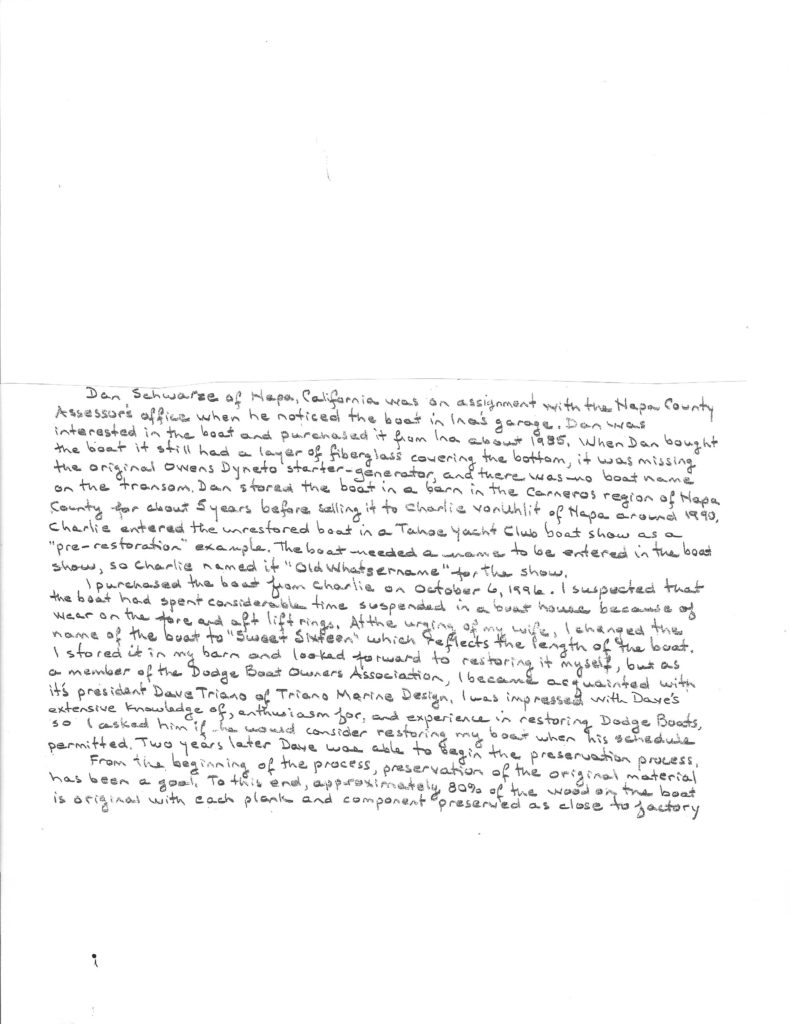 Dan Schwarze of Napa, California was on assignment with the Napa County
Assessor's office when he noticed the boat in Ina's garage. Dan was
interested in the boat and purchased it from Ina about 1985. When Dan bought
the boat it still had a layer of fiberglass covering the bottom, it was missing
the original Owens Dyneto starter-generator, and there was no boat name
on the transom. Dan stored the boat in a barn in the Carneros region of Napa
County for about 5 years before selling it to Charlie vonUhlit of Napa around 1990.
Charlie entered the unrestored boat in a Tahoe Yacht Club boat show as a
"pre-restoration" example. The boat needed a name to be entered in the boat
show, so Charlie named it "Old Whatsername" for the show.
I purchased the boat from Charlie on October 6, 1996. I suspected that
the boat had spent considerable time suspended in a boat house because of
wear on the fore and aft lift rings. At the urging of my wife, I changed the
name of the boat to "Sweet Sixteen" which reflects the length of the boat.
I stored it in my barn and looked forward to restoring it myself, but as
a member of the Dodge Boat Owners Association, I became acquainted with
it's president Dave Triano of Triano Marine Design. I was impressed with Dave's
extensive knowledge of, enthusiasm for, and experience in restoring Dodge Boats,
so I asked him if he would consider restoring my boat when his schedule
permitted. Two years later Dave was able to begin the preservation process.
From the beginning of the process, preservation of the original material
has been a goal. To this end, approximately 80% of the wood on the boat
is original with each plank and component preserved as close to factory